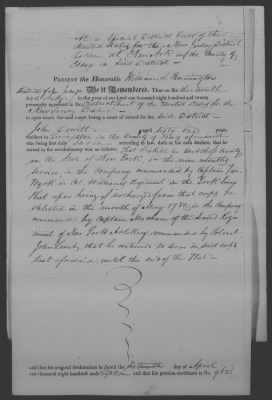 At a Special District Court of the
United States for the New Jersey District
holden at Newark in the County of
Essex in said District
PRESENT the Honorable William S. Pennington
District of New Jersey Be it Remembers, That on the
day of in the year of our Lord one thousand eight hundred and twenty
personally appeared in the District Court of the United States for the
New Jersey District
in open court, the said court being a court of record for the said District
John aged fifty four years,
resident in in the County of Essex aforesaid
who being first duly sworn according to law, doth on his oath declare, that he
served in the revolutionary war as follows: That
in the State of New York in the nine months
service in the Company commanded by Captain Van
Wyck in Col. Regiment in the York line
That upon being discharged from that corps he
enlisted in the month of May 1780, in the Company
commanded by Captain of the Second Regi
ment of New York Artillery commanded by Colonel
John Lamb, that he continued to serve in said corps
last aforesaid until the end of the War.
and that his original declaration is dated the day of April
one thousand eight hundred and eighteen and that his pension certificate is No.